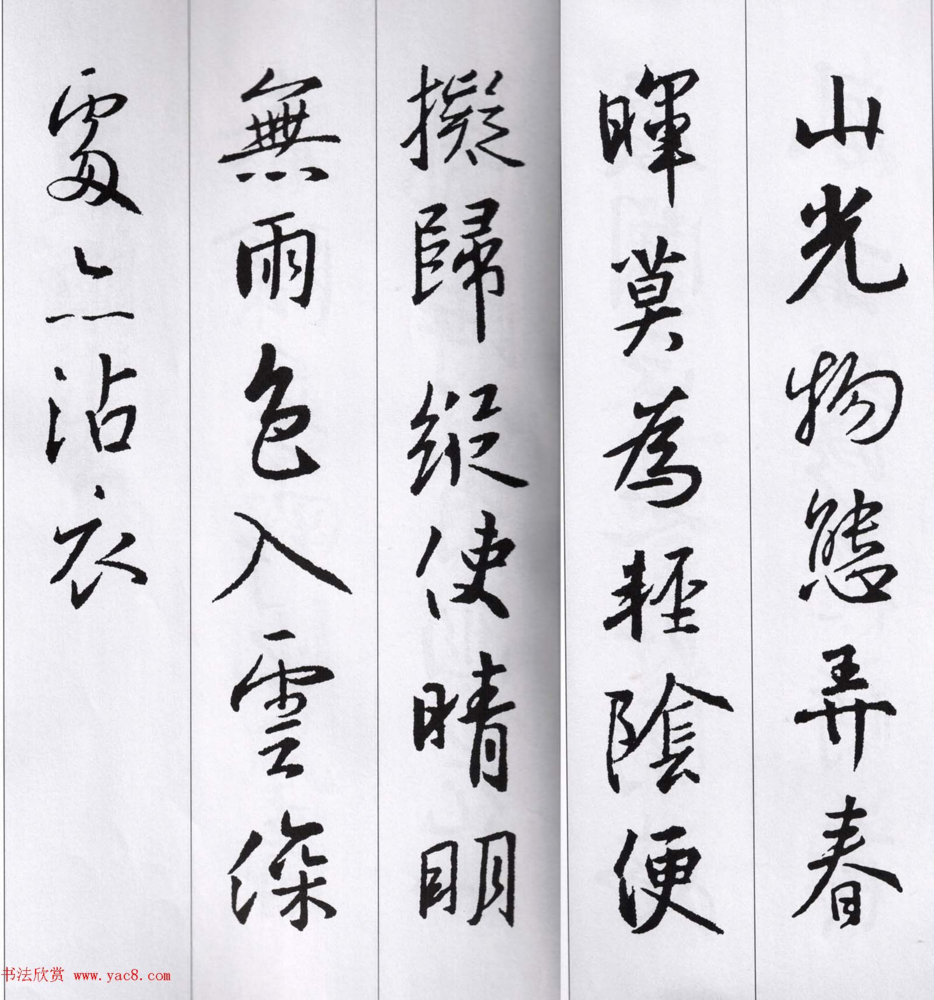 山光物態弄春
暉莫為輕陰便
擬歸縱使晴明
無雨色入雲深
處亦沾衣
书法欣赏 www.yac8.com